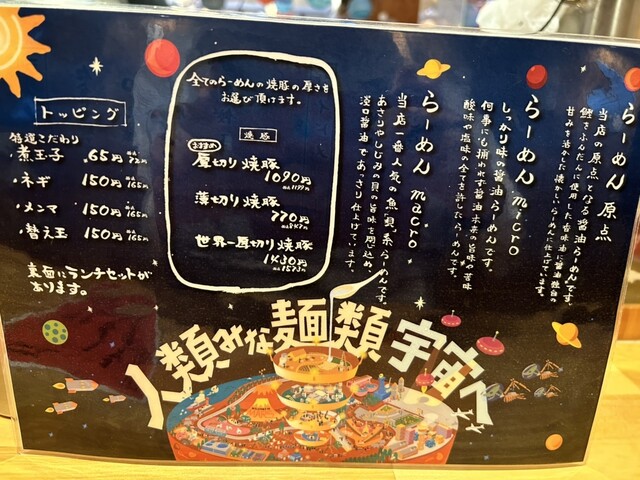 らーめん 原点
当店の原点となる醤油らーめんです。
鰹をふんだんに使用した旨味油に醤油独自の
甘みを活かした懐かしいらーめんに仕上げています。
らーめん micro
しっかり味の醤油らーめんです。
何事にも捕われず醤油本来の旨味や苦味
酸味や塩味の全てを許したらーめんです。
らーめん macro
当店一番人気の魚貝系らーめんです。
あさりやしじみ貝の旨味を閉じ込め、
淡口醤油であっさり仕上げています。
全てのらーめんの焼豚の厚さを
お選び頂けます。
焼豚
おすすめ
厚切り焼豚
1090円
税込1199円
薄切り焼豚
770円
税込847円
世界一厚切り焼豚
1430円
税込1573円
トッピング
特選こだわり
煮玉子 65円 税込72円
ネギ 150円 税込165円
メンマ 150円 税込165円
替え玉 150円 税込165円
裏面にランチセットが
あります。
人類みな麺類宇宙へ